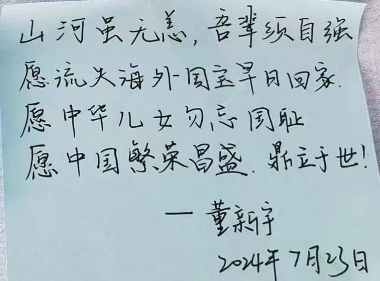 山河虽无恙,吾辈须自强
愿流失海外国宝早日回家.
愿中华儿女勿忘国耻
愿中国繁荣昌盛.鼎立于世!
—董新宇
2024年7月23日